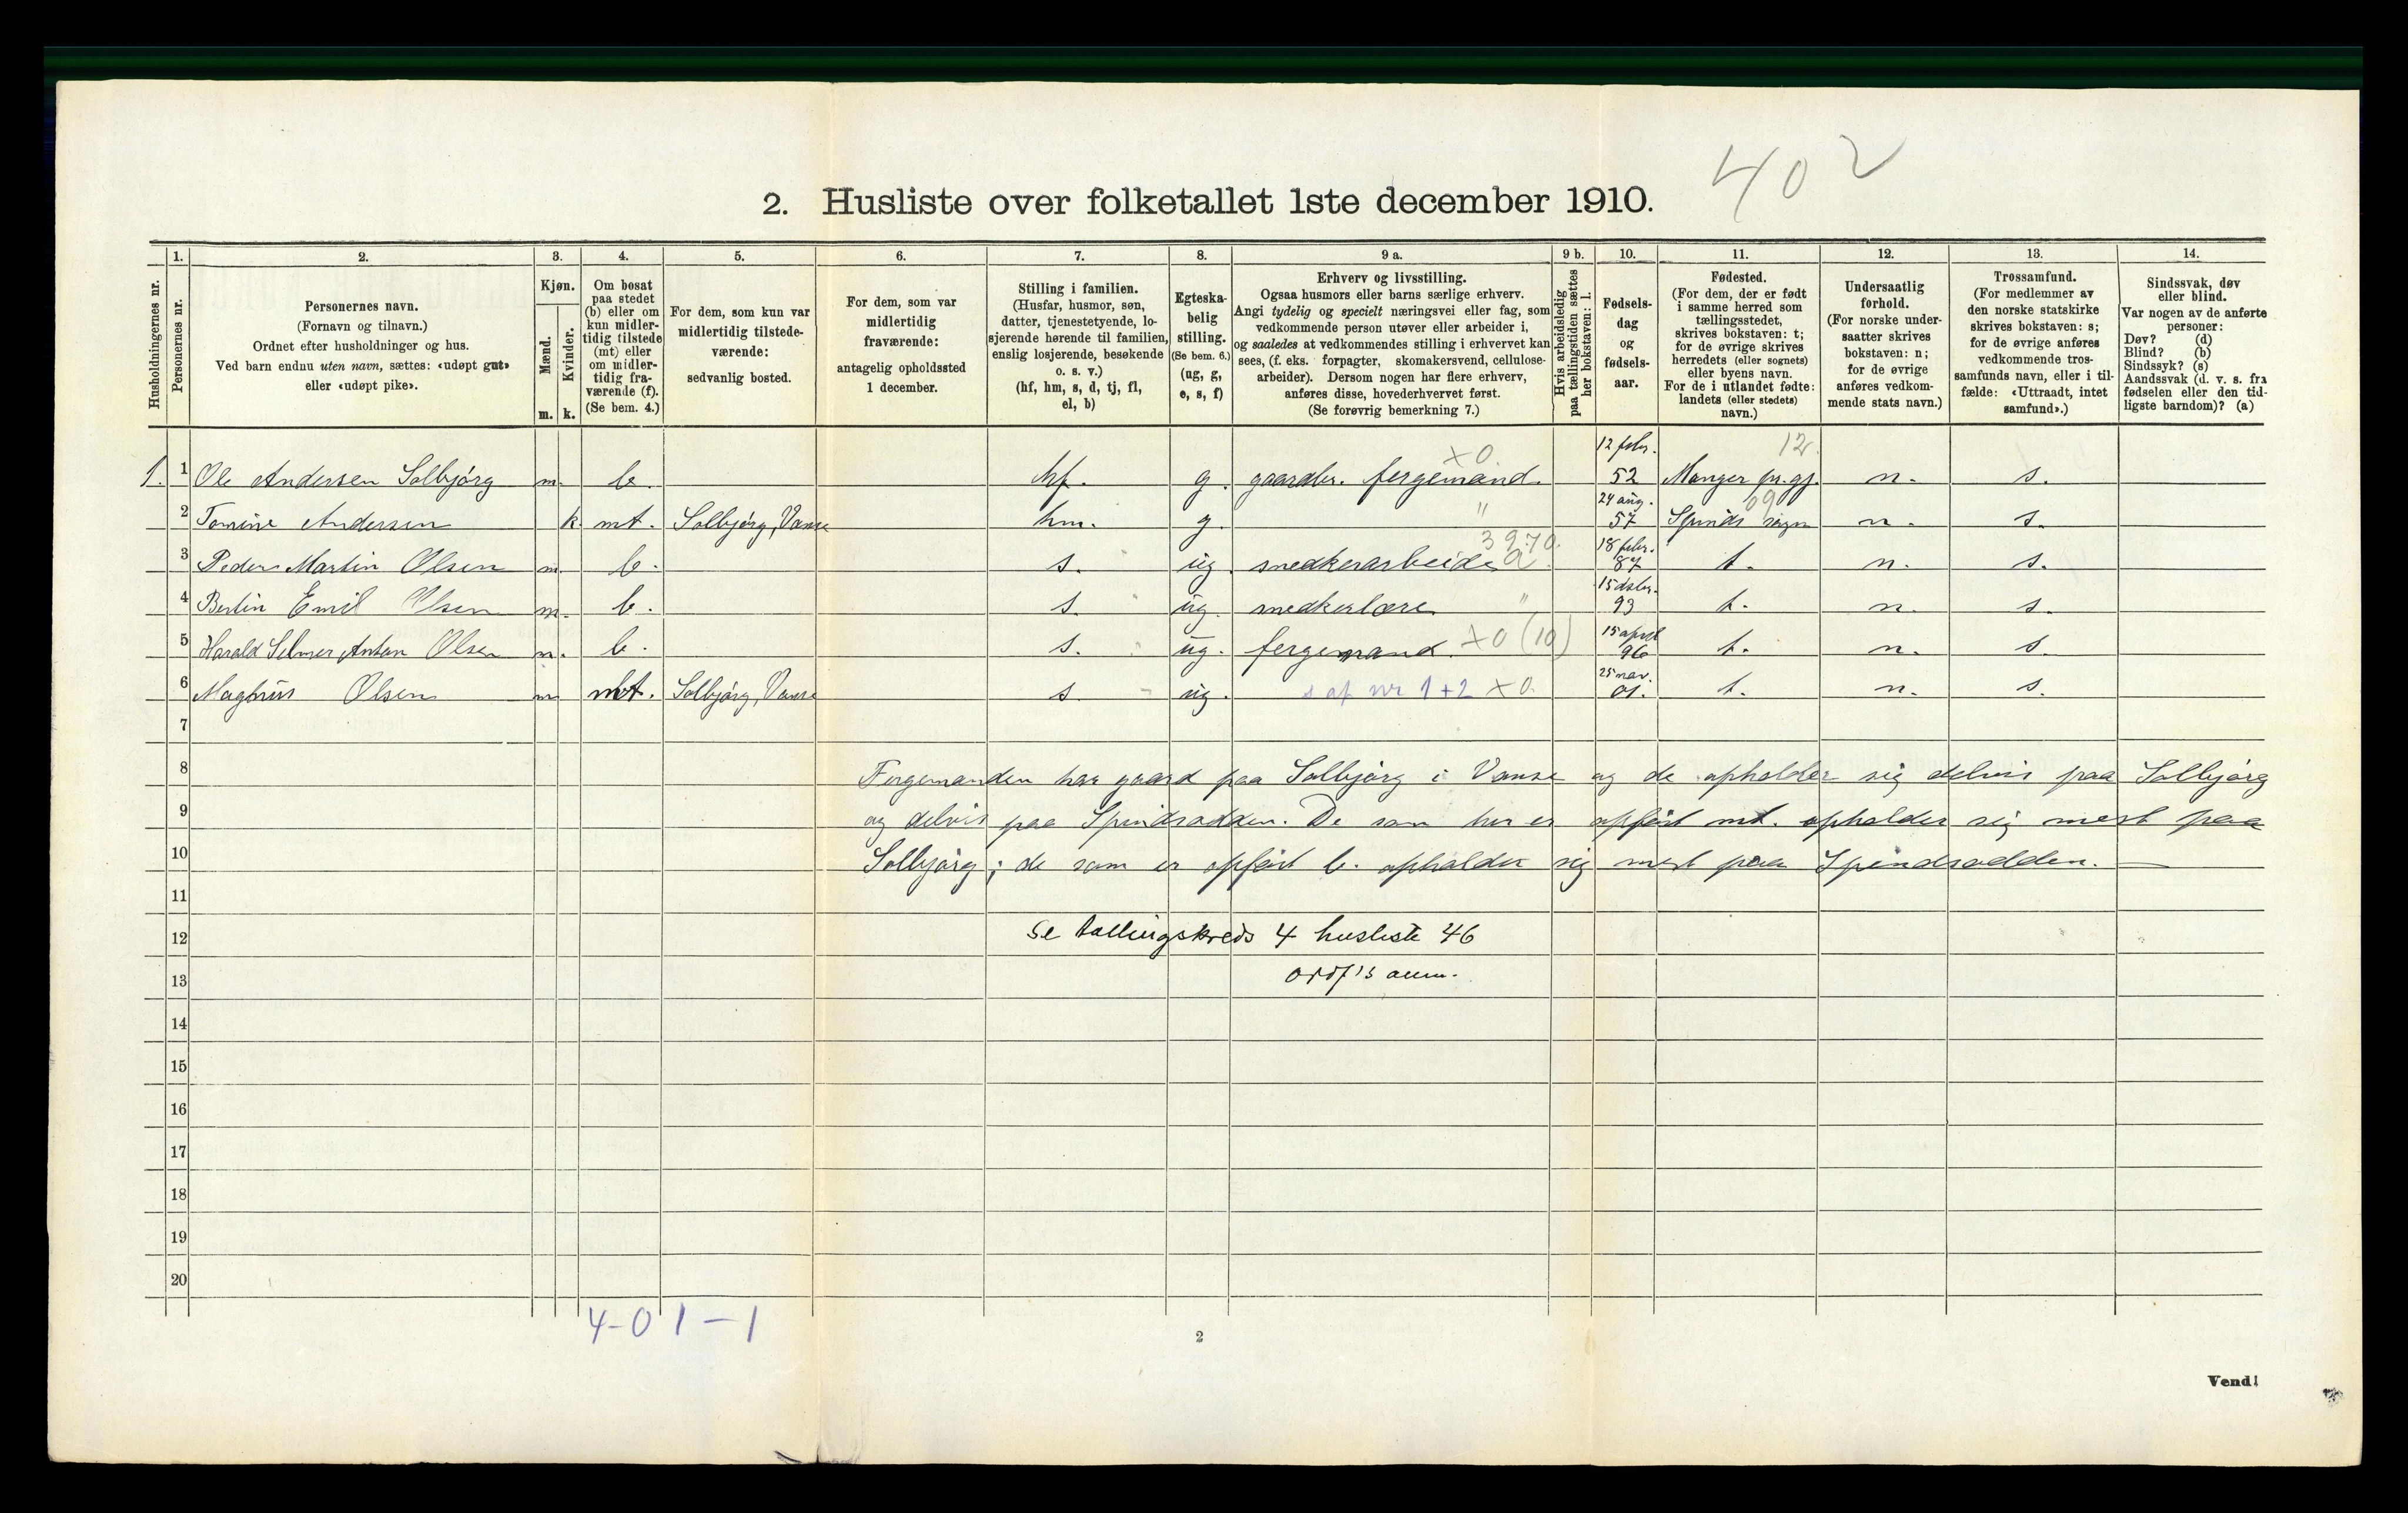 402
2. Husliste over folketallet 1ste december 1910.
Husholdningernes nr.
1.
Personernes nr.
2.
Personernes navn.
(Fornavn og tilnavn.)
Ordnet efter husholdninger og hus.
Ved barn endnu uten navn, sættes: «udøpt gut»
eller «udøpt pike».
3.
Kjøn.
Mænd.
Kvinder.
m. k.
4.
Om bosat
paa stedet
(b) eller om
kun midler-
tidig tilstede
(mt) eller
om midler-
tidig fra-
værende (f).
(Se bem. 4.)
5.
For dem, som kun var
midlertidig tilstede-
værende:
sedvanlig bosted.
6.
For dem, som var
midlertidig
fraværende:
antagelig opholdssted
1 december.
7.
Stilling i familien.
(Husfar, husmor, søn,
datter, tjenestetyende, lo-
sjerende hørende til familien,
enslig losjerende, besøkende
o. s. v.)
(hf, hm, s, d, tj, fl,
el, b)
8.
Egteska-
belig
stilling.
(Se bem. 6.)
(ug, g,
e, s, f)
9 a.
Erhverv og livsstilling.
Ogsaa husmors eller barns særlige erhverv.
Angi tydelig og specielt næringsvei eller fag, som
vedkommende person utøver eller arbeider i,
og saaledes at vedkommendes stilling i erhvervet kan
sees, (f. eks. forpagter, skomakersvend, cellulose-
arbeider). Dersom nogen har flere erhverv,
anføres disse, hovederhvervet først.
(Se forøvrig bemerkning 7.)
9 b.
Hvis arbeidsledig
paa tællingstiden sættes
her bokstaven: l.
10.
Fødsels-
dag
og
fødsels-
aar.
11.
Fødested.
(For dem, der er født
i samme herred som
tællingsstedet,
skrives bokstaven: t;
for de øvrige skrives
herredets (eller sognets)
eller byens navn.
For de i utlandet fødte:
landets (eller stedets)
navn.)
12.
Undersaatlig
forhold.
(For norske under-
saatter skrives
bokstaven: n;
for de øvrige
anføres vedkom-
mende stats navn.)
13.
Trossamfund.
(For medlemmer av
den norske statskirke
skrives bokstaven: s;
for de øvrige anføres
vedkommende tros-
samfunds navn, eller i til-
fælde: «Uttraadt, intet
samfund».)
14.
Sindssvak, døv
eller blind.
Var nogen av de anførte
personer:
Døv? (d)
Blind? (b)
Sindssyk? (s)
Aandssvak (d. v. s. fra
fødselen eller den tid-
ligste barndom)? (a)
1. 1 Ole Andersen Solbjørg m. b. hf. g. gaardbr. fergemand. x0 12 febr. 52 Manger pr.gj. 12. n. s.
2 Tomine Andersen k. mt. Solbjørg, Vanse hm. g. " 24 aug. 57 Spinds sogn 09 n. s.
3 Peder Martin Olsen m. b. s. ug. snedkerarbeide 3970. a. 18 febr. 87 t. n. s.
4 Bertin Emil Olsen m. b. s. ug. snedkerlære " 15 dsbr. 93 t. n. s.
5 Harald Selmer Anton Olsen m. b. s. ug. fergemand. x0 (10) 15 april 96 t. n. s.
6 Maghus Olsen m mt. Solbjørg, Vanse s. ug. s af nr 1+2 x0. 25 nov. 01. t. n. s.
7
8 Fergemanden har gaard paa Solbjørg i Vanse og de opholder sig delvis paa Solbjørg
9 og delvis paa Spindsodden. De som her er opført mt. opholder sig mest paa
10 Solbjørg; de som er opført b. opholder sig mest paa Spindsodden.
11
12 Se tællingskreds 4 husliste 46
13 ordf's anm.
14
15
16
17
18
19
20
4-0 1-1
2
Vend!